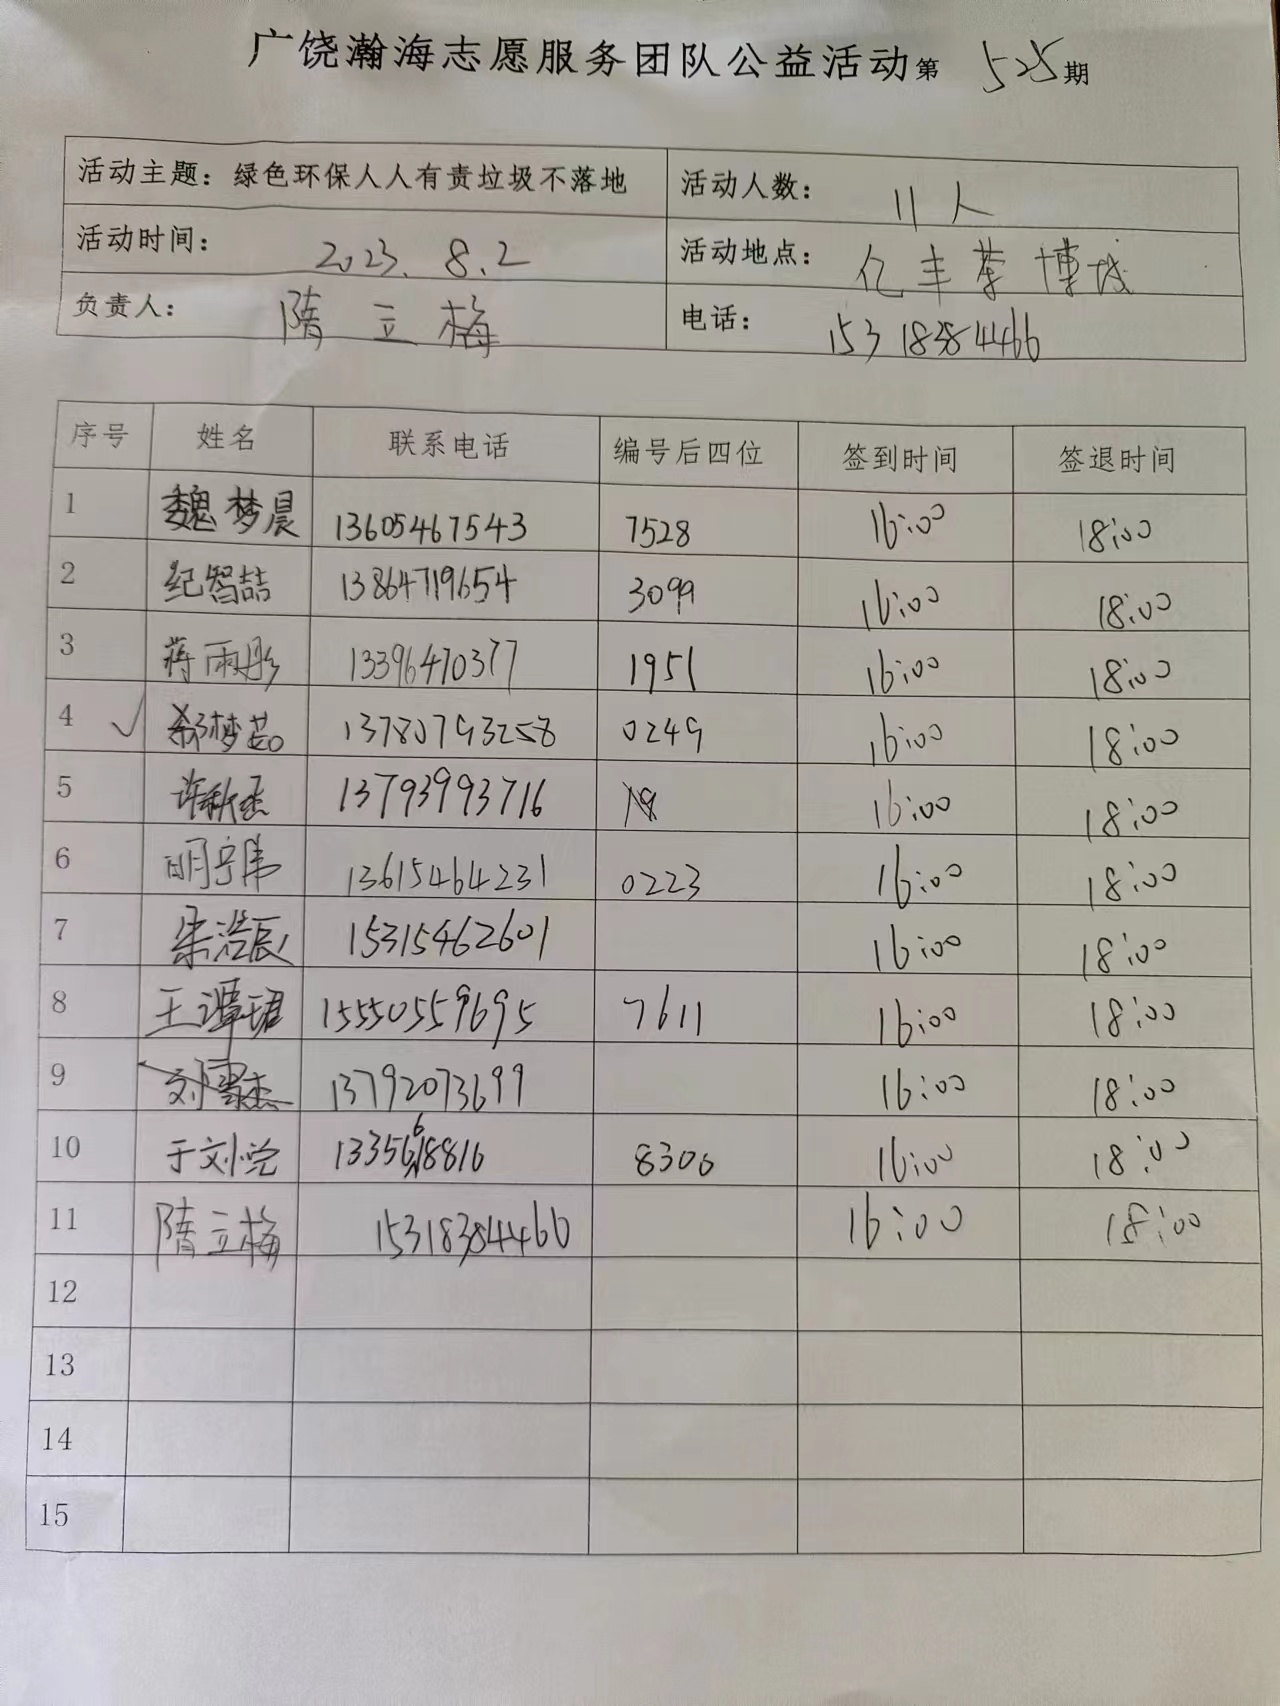 广饶瀚海志愿服务团队公益活动第 525 期
活动主题：绿色环保人人有责垃圾不落地 活动人数： 11人
活动时间： 2023.8.2 活动地点： 亿丰茶博城
负责人： 隋立梅 电话： 15318384466
序号 姓名 联系电话 编号后四位 签到时间 签退时间
1 魏梦晨 13605467543 7528 16:00 18:00
2 纪智喆 13864719654 3099 16:00 18:00
3 蒋雨彤 13396470377 1951 16:00 18:00
4 ✓ 郗梦茹 13780793258 0249 16:00 18:00
5 许秋杰 13793993716 16:00 18:00
6 明宁伟 13615464231 0223 16:00 18:00
7 梁浩辰 15315462601 16:00 18:00
8 王潭珺 15550559695 7611 16:00 18:00
9 刘雪杰 13792073699 16:00 18:00
10 于刘 8306 16:00 18:00
11 隋立梅 15318384466 16:00 18:00
12
13
14
15